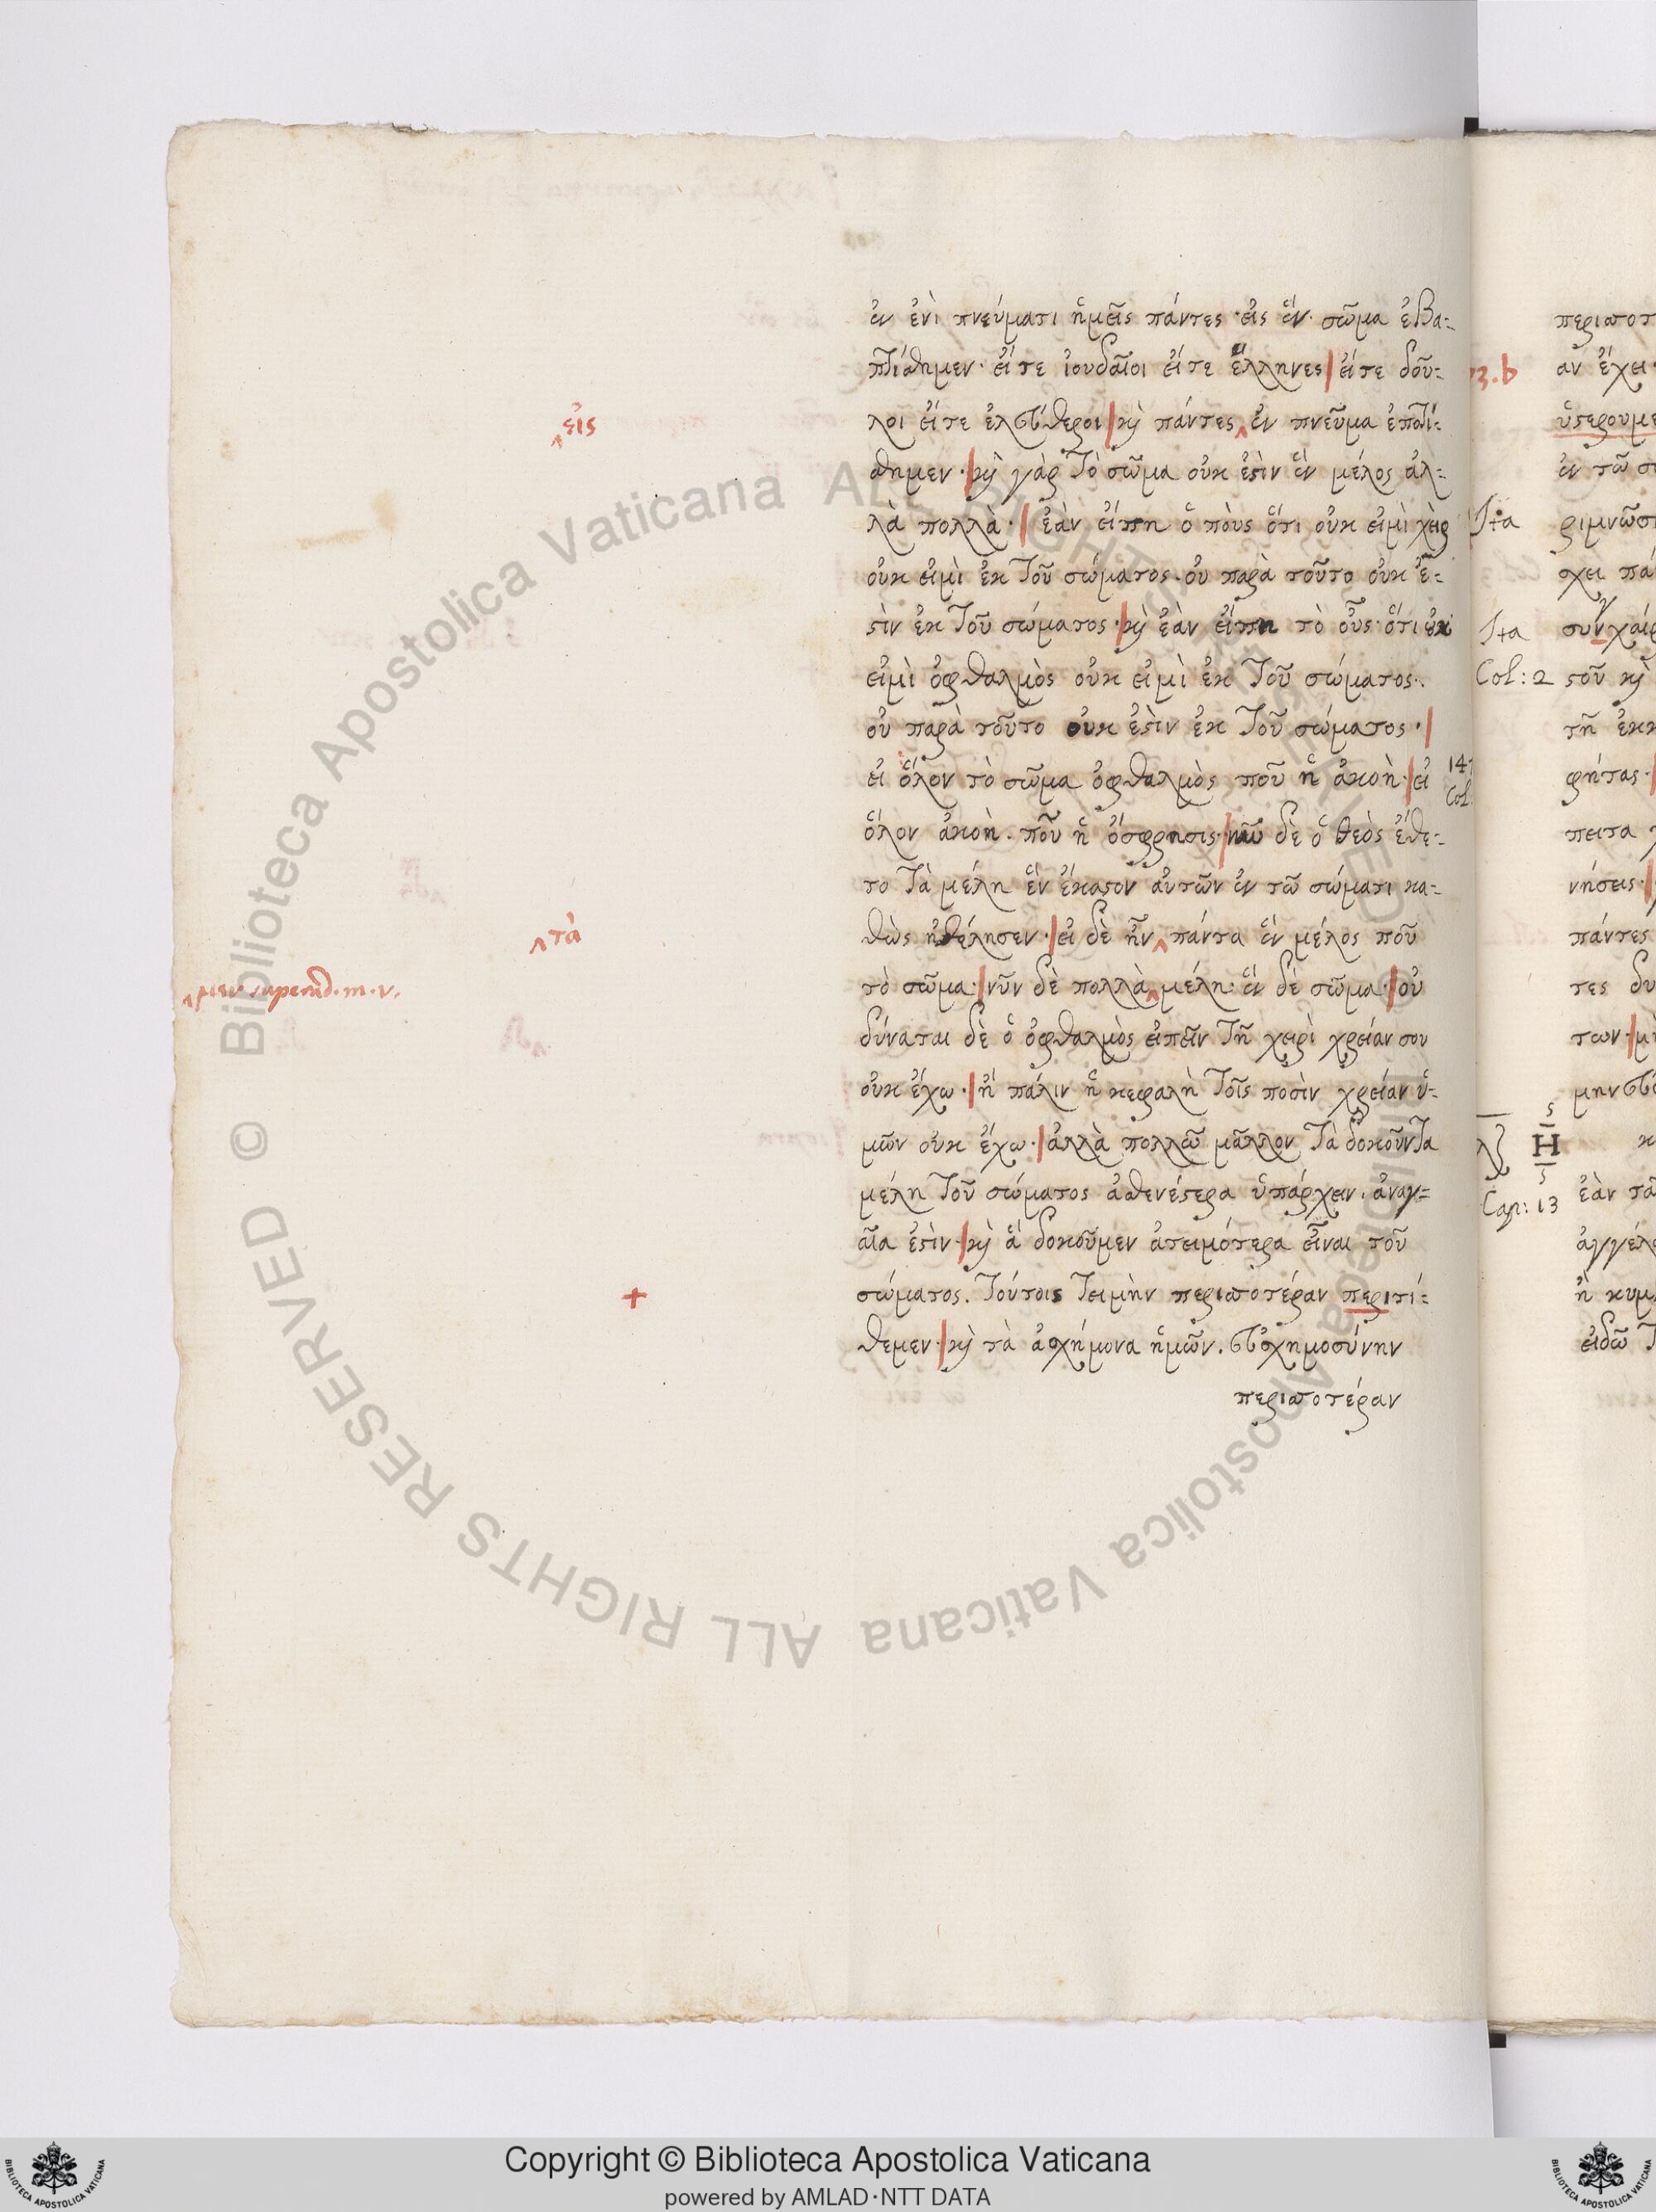 ἐν ἑνὶ πνεύματι ἡμεῖς πάντες · εἰς ἓν · σῶμα ἐβα-
πτίσθημεν · εἴτε ἰουδαῖοι εἴτε ἕλληνες | εἴτε δοῦ-
λοι εἴτε ἐλεύθεροι | καὶ πάντες ‸ ἓν πνεῦμα ἐποτί-
‸ εἰς
σθημεν · | καὶ γὰρ τὸ σῶμα οὐκ ἐστὶν ἓν μέλος ἀλ-
λὰ πολλὰ · | ἐὰν εἴπη ὁ πὸυς ὅτι οὐκ εἰμὶ χὲιρ
οὐκ εἰμὶ ἐκ τοῦ σώματος . οὐ παρὰ τοῦτο οὐκ ἔ-
στὶν ἐκ τοῦ σώματος · | καὶ ἐὰν εἴπη τὸ οὖς · ὅτι οὐκ
εἰμὶ ὀφθαλμὸς οὐκ εἰμὶ ἐκ τοῦ σώματος .
οὐ παρὰ τοῦτο οὐκ ἐστὶν ἐκ τοῦ σώματος · |
εἰ ὅλον τὸ σῶμα ὀφθαλμὸς ποῦ ἡ ἀκοὴ · | εἰ
ὅλον ἀκοὴ . ποῦ ἡ ὄσφρησις · | νῦν δὲ ὁ θεὸς ἔθε-
το τὰ μέλη ἓν ἕκαστον αὐτῶν ἐν τῶ σώματι κα-
θὼς ἠθέλησεν · | εἰ δὲ ἦν ‸ πάντα ἓν μέλος ποῦ
‸ τὰ
τὸ σῶμα · | νῦν δὲ πολλὰ ‸ μέλη · ἓν δὲ σῶμα · | οὐ
‸ μεν superad. m. v.
δύναται δὲ ὁ ὀφθαλμὸς εἰπεῖν τῆ χειρὶ χρείαν σου
οὐκ ἔχω · | ἢ πάλιν ἡ κεφαλὴ τοῖς ποσὶν χρείαν ὑ-
μῶν οὐκ ἔχω · | ἀλλὰ πολλῶ μᾶλλον τὰ δοκοῦντα
μέλη τοῦ σώματος ἀσθενέστερα ὑπάρχειν . ἀναγ-
αῖα ἐστὶν · | καὶ ἃ δοκοῦμεν ἀτειμότερα εἶναι τοῦ
σώματος . τούτοις τειμὴν περισσοτέραν περιτί-
+
θεμεν · | καὶ τὰ ἀσχήμονα ἡμῶν . εὐσχημοσύνην
περισσοτέραν
3.b
Ita
Ita
Col: 2
147
Col
H
Cap: 13
αν ἔχει
ὑστερουμε
ἐν τῶ σ
ριμνῶσι
σχει πά
συνχαίρ
στοῦ καὶ
τῆ ἐκκ
φήτας · |
πειτα
νήσεις · |
πάντες
τες δυ
των · | μὴ
ἐὰν τα
ἀγγέλ
ἢ κυμ
εἰδῶ τ
Copyright © Biblioteca Apostolica Vaticana
powered by AMLAD·NTT DATA
© Biblioteca Apostolica Vaticana ALL RIGHTS RESERVED